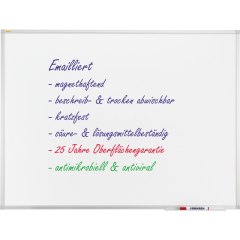 Emailliert
- magnethaftend
- beschreib- & trocken abwischbar
- kratzfest
- säure- & lösungsmittelbeständig
- 25 Jahre Oberflächengarantie
- antimikrobiell & antiviral